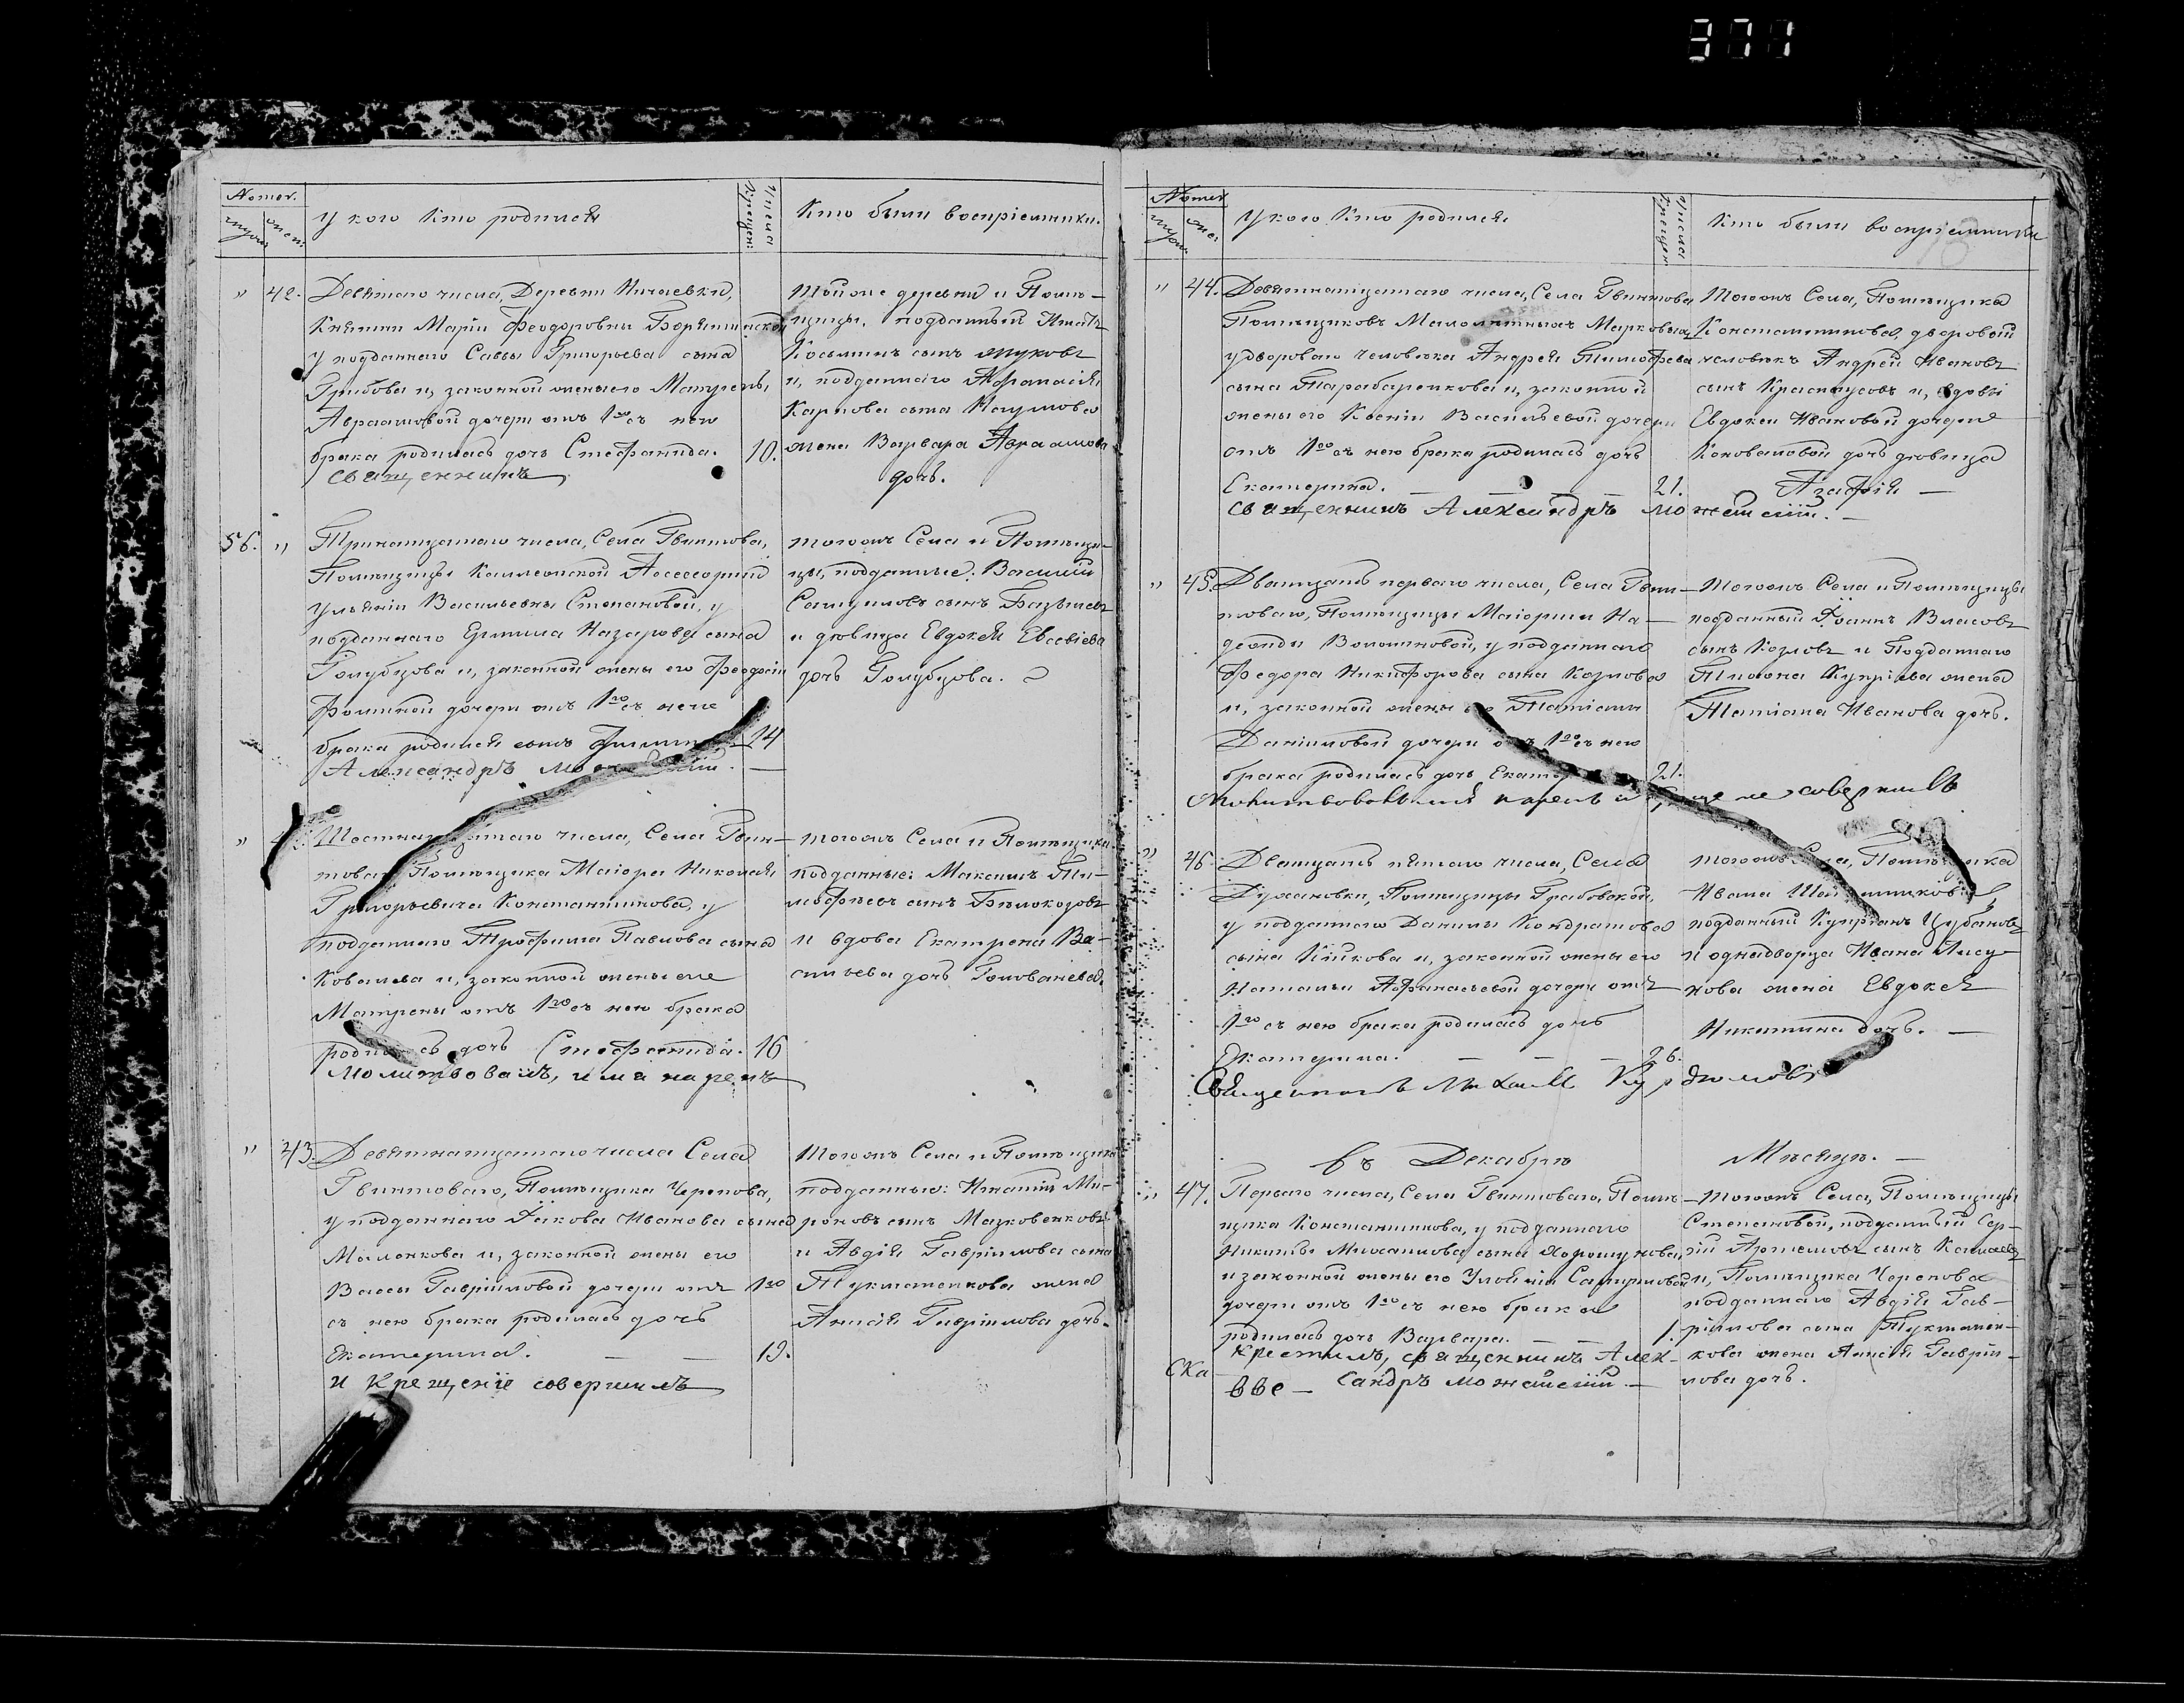 371
Nomer.
У кого кто родился
Числа Крещен:
Кто были воспріемники.
" 42. Девятаго числа, Деревни Ничаевки,
Княгини Маріи Феодоровны Борятинской
у подданнаго Саввы Григорьева сына
Грибова и, законной жены его Матрены,
Авраамовой дочери отъ 1го съ нею
брака родилась дочь Стефанида. 10.
священникъ
Той же деревни и Помѣ-
щицы, подданный Игнатъ
Косьминъ сынъ Жуковъ
и, подданнаго Афанасія
Карпова сына Наумова
жена Варвара Авраамова
дочь.
56. " Тринатцатаго числа, Села Гвинтова,
Помѣщицы Коллежской Асессорши
Ульяніи Васильевны Степановой, у
подданнаго Ермила Назарова сына
Голубцова и, законной жены его Феодосіи
Фоминой дочери отъ 1го съ нею
брака родился сынъ 14
Александръ
тогожъ Села и Помѣщи-
цы, подданные: Василій
Самуиловъ сынъ
и дѣвица Евдокея Евсевіева
дочь Голубцова.
" Шестнатцатаго числа, Села Гвин-
това Помѣщика Маіора Николая
Григорьевича Константинова, у
подданнаго Трофима Павлова сына
Ковалева и, законной жены его
Матрены отъ 1го съ нею брака
родилась дочь Стефанида. 16
Молитвовалъ, имя нарекъ
тогожъ Села и Помѣщика
подданные: Максимъ Ти-
мофѣевъ сынъ Бѣлокозовъ
и вдова Екатрена Ва-
сильева дочь Голованева.
" 43. Девятнатцатаго числа Села
Гвинтоваго, Помѣщика Черепова,
у подданнаго Якова Иванова сына
Маленкова и, законной жены его
Вассы Гавріиловой дочери отъ 1го
съ нею брака родилась дочь
Екатерина. 19.
и Крещеніе совершилъ
Тогожъ Села и Помѣщика
подданные: Игнатій Ми-
роновъ сынъ Мазковенковъ
и Авдія Гавріилова сына
Тукманенкова жена
Анисія Гавріилова дочь.
Nomer
У кого кто родился
Числа Крещен
Кто были воспріемники
" 44. Девятнатцатаго числа, Села Гвинтова
Помѣщиковъ Малолѣтныхъ Марковыхъ
у двороваго человѣка Андрея Тимофеева
сына Тарабаренкова и, законной
жены его Ксеніи Васильевой дочери
отъ 1го съ нею брака родилась дочь
Екатерина. 21.
священникъ Александръ Можайскій.
Тогожъ Села, Помѣщика
Константинова, дворовой
человѣкъ Андрей Ивановъ
сынъ Краснаусовъ и, вдовы
Евдокеи Ивановой дочери
Коноваловой дочь дѣвица
Агафія
" 45. Дватцать перваго числа, Села Гвин-
товаго, Помѣщицы Маіорши На-
дежды Волжиновой, у подданнаго
Федора Никифорова сына Козлова
и, законной жены его Татіаны
Даніиловой дочери отъ 1го съ нею
брака родилась дочь Екатерина 21.
Молитвовалъ имя нарекъ и крещеніе совершилъ
Тогожъ Села и Помѣщицы
подданный Іоаннъ Власовъ
сынъ Козловъ и Подданнаго
Тихона Купріева жена
Татіана Иванова дочь.
" 46. Дватцать пятаго числа, Села
Духановки, Помѣщицы Грабовской,
у подданнаго Данилы Кондратова
сына Кійкова и, законной жены его
Натальи Афанасьевой дочери отъ
1го съ нею брака родилась дочь
Екатерина. 26.
Священникъ Михаилъ Курдюмовъ
тогожъ Села, Помѣщика
Ивана
подданный Купріанъ Цубановъ
и однадворца Ивана Лису-
нова жена Евдокея
Никитина дочь.
въ Декабрѣ Мѣсяцѣ.
" 47. Перваго числа, Села Гвинтоваго, Помѣ-
щика Константинова, у подданнаго
Никиты Михаилова сына Хорошунова,
и законной жены его Улояніи Самуиловой
дочери отъ 1го съ нею брака
родилась дочь Варвара. 1.
Крестилъ, священникъ Алек-
сандръ Можайскій.
Тогожъ Села, Помѣщицы
Степановой, подданный Сер-
гій Артемовъ сынъ
и, Помѣщика Черепова
подданнаго Авдія Гав-
ріилова сына Тукманен-
кова жена Анисія Гавріи-
лова дочь.
ска
вве